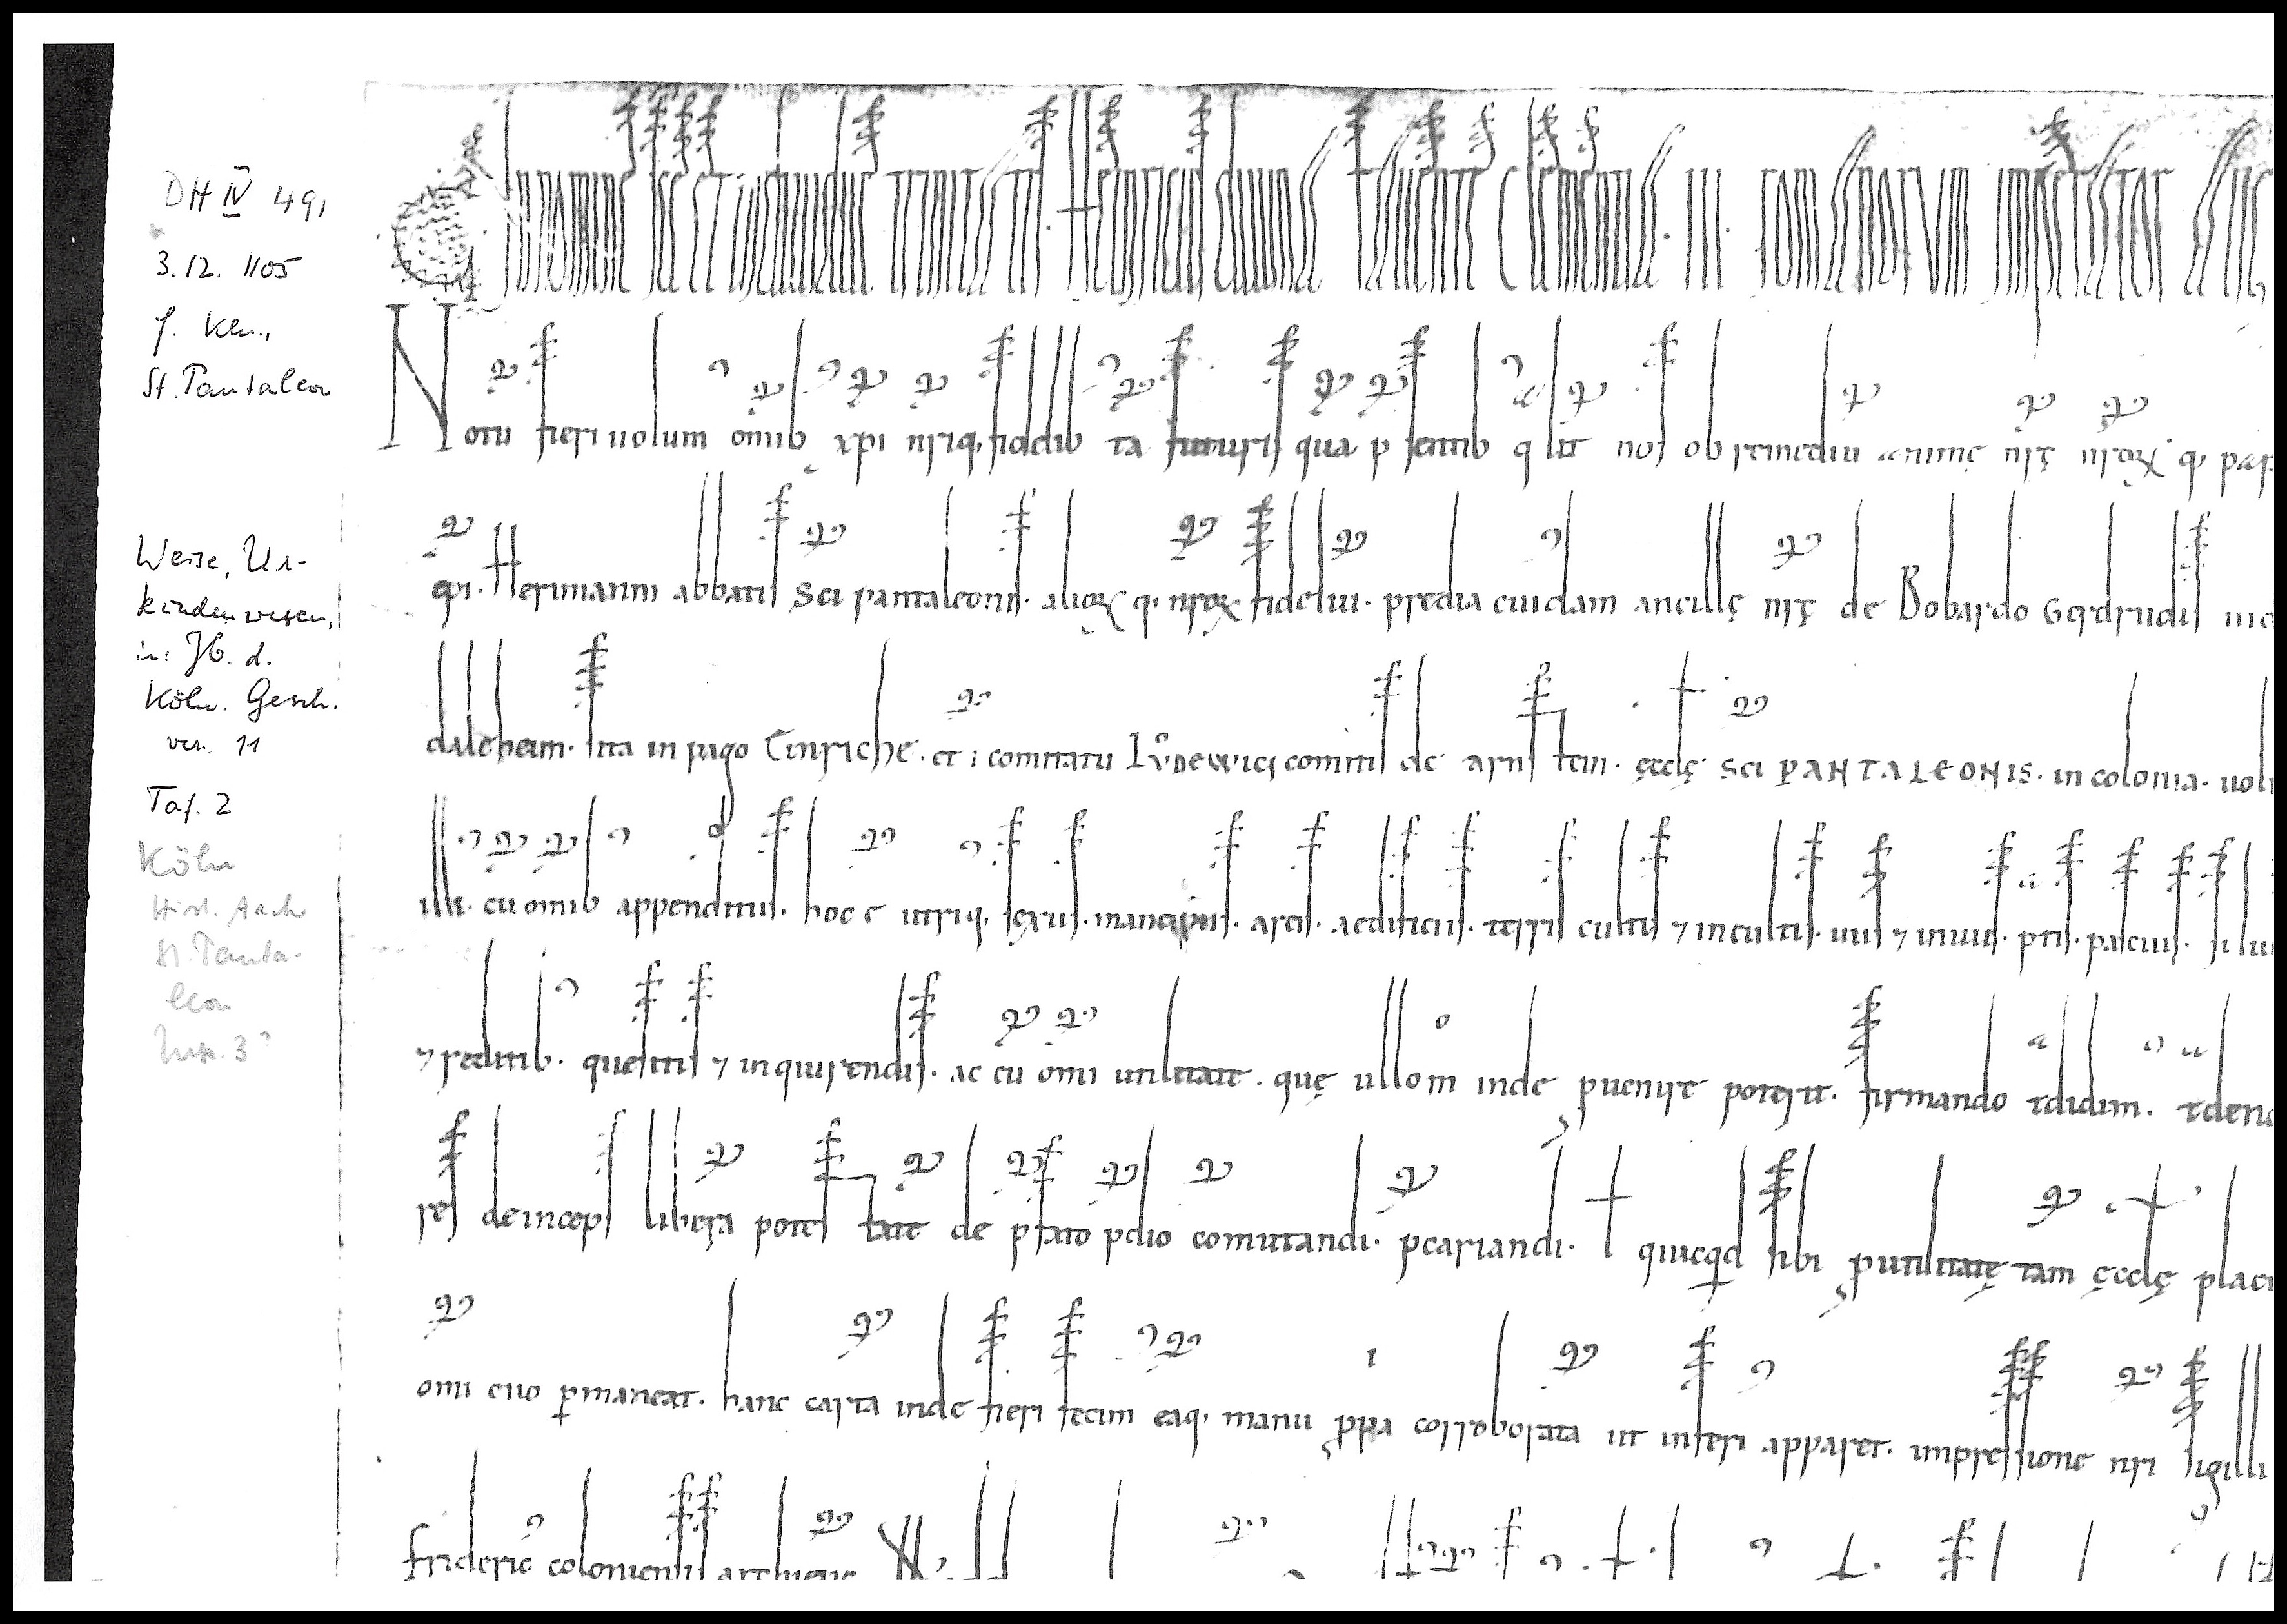 DH IV 491
3.12. 1105
f. Kln.,
St. Pantaleon
Weise, Ur-
kundenwesen,
in: Jb. d.
Köln. Gesch.
ver. 11
Taf. 2
Köln
Hist. Arch
St. Panta-
leon
Urk. 3?
In nomine sce et individue trinitatis. Heinricus divina favente clementia. III. romanorum imperator aug
Notu fieri volum omib xpi nrisq. fidelib ta futuris qua p sentib q lit nos ob remediu anime nrę nrorꝝ q. par
epi. Herimanni abbatis Sci pantaleonis. aliorꝝ q. nrorꝝ fideliu. predia cuidam ancillę nrę de Bobardo Gerdrudis
daleheim. sita in pago Einriche. et i comitatu Lůdewici comitis de arnstein. ęcclę sci PANTALEONIS. in colonia.
cu omib appenditiis. hoc e utriq. sexus. mancipiis. areis. aedificiis. terris cultis ⁊ incultis. viis ⁊ inviis. ptis. pascuis.
⁊ reditib. quesitis ⁊ inquirendis. ac cu omi utilitate. quę ullom inde puenire poterit. firmando tdidim.
deinceps libera potestate de pfato pdio comutandi. pcariandi. quicqd sibi putilitatę tam ęcclę
omi evo pmaneat. hanc carta inde fieri fecim eaq. manu ppa corroborata ut inferi apparet. impressione nri sigilli
frideric coloniensis